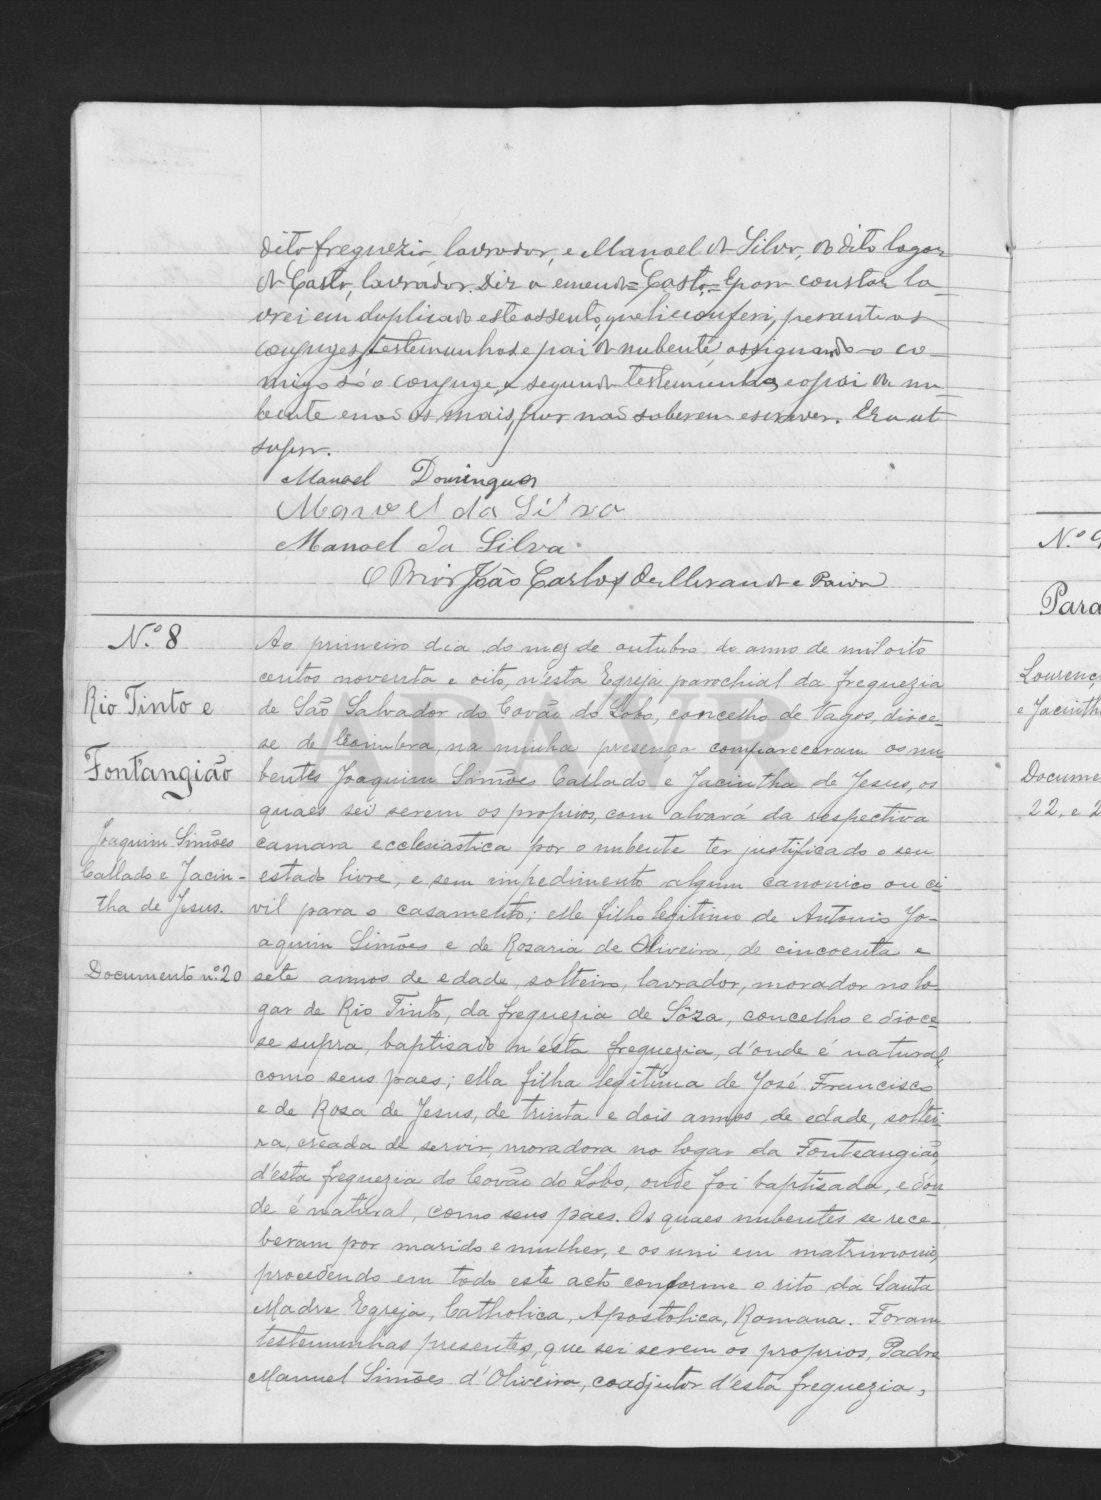 dita freguezia, lavrador, e Manoel da Silva, do dito logar
de Casto, lavrador. Diz a emenda = Casto = E para constar la-
vrei em duplicado este assento, que li e conferi, perante os
conjuges, testemunhas e pai da nubente, assignando-o co-
migo só o conjuge, a segunda testemunha, e o pai da nu-
bente e não os mais, por não saberem escrever. Era ut
supra.
Manoel Domingues
Manoel da Silva
Manoel da Silva
O Prior João Carlos de Miranda e Paiva
N.º 8
Rio Tinto e
Fontangião
Joaquim Simões
Callado e Jacin-
tha de Jesus.
Documento n.º 20
Ao primeiro dia do mez de outubro do anno de mil oito
centos noventa e oito, n'esta Egreja parochial da freguezia
de São Salvador do Covão do Lobo, concelho de Vagos, dioce-
se de Coimbra, na minha presença compareceram os nu-
bentes Joaquim Simões Callado e Jacintha de Jesus, os
quaes sei serem os proprios, com alvará da respectiva
camara ecclesiastica por o nubente ter justificado o seu
estado livre, e sem impedimento algum canonico ou ci-
vil para o casamento; elle filho legitimo de Antonio Jo-
aquim Simões e de Rosaria de Oliveira, de cincoenta e
sete annos de edade, solteiro, lavrador, morador no lo-
gar de Rio Tinto, da freguezia de Sôza, concelho e dioce-
se supra, baptisado n'esta freguezia, d'onde é natural,
como seus paes; ella filha legitima de José Francisco
e de Rosa de Jesus, de trinta e dois annos de edade, soltei-
ra, creada de servir, moradora no logar da Fonteangião,
d'esta freguezia do Covão do Lobo, onde foi baptisada, e d'on-
de é natural, como seus paes. Os quaes nubentes se rece-
beram por marido e mulher, e os uni em matrimonio,
procedendo em todo este acto conforme o rito da Santa
Madre Egreja, Catholica, Apostolica, Romana. Foram
testemunhas presentes, que sei serem os proprios, Padre
Manuel Simões d'Oliveira, coadjutor d'esta freguezia,
N.º 9
Para
Lourenç
e Jacinth
Docume
22, e 2
ADAVR